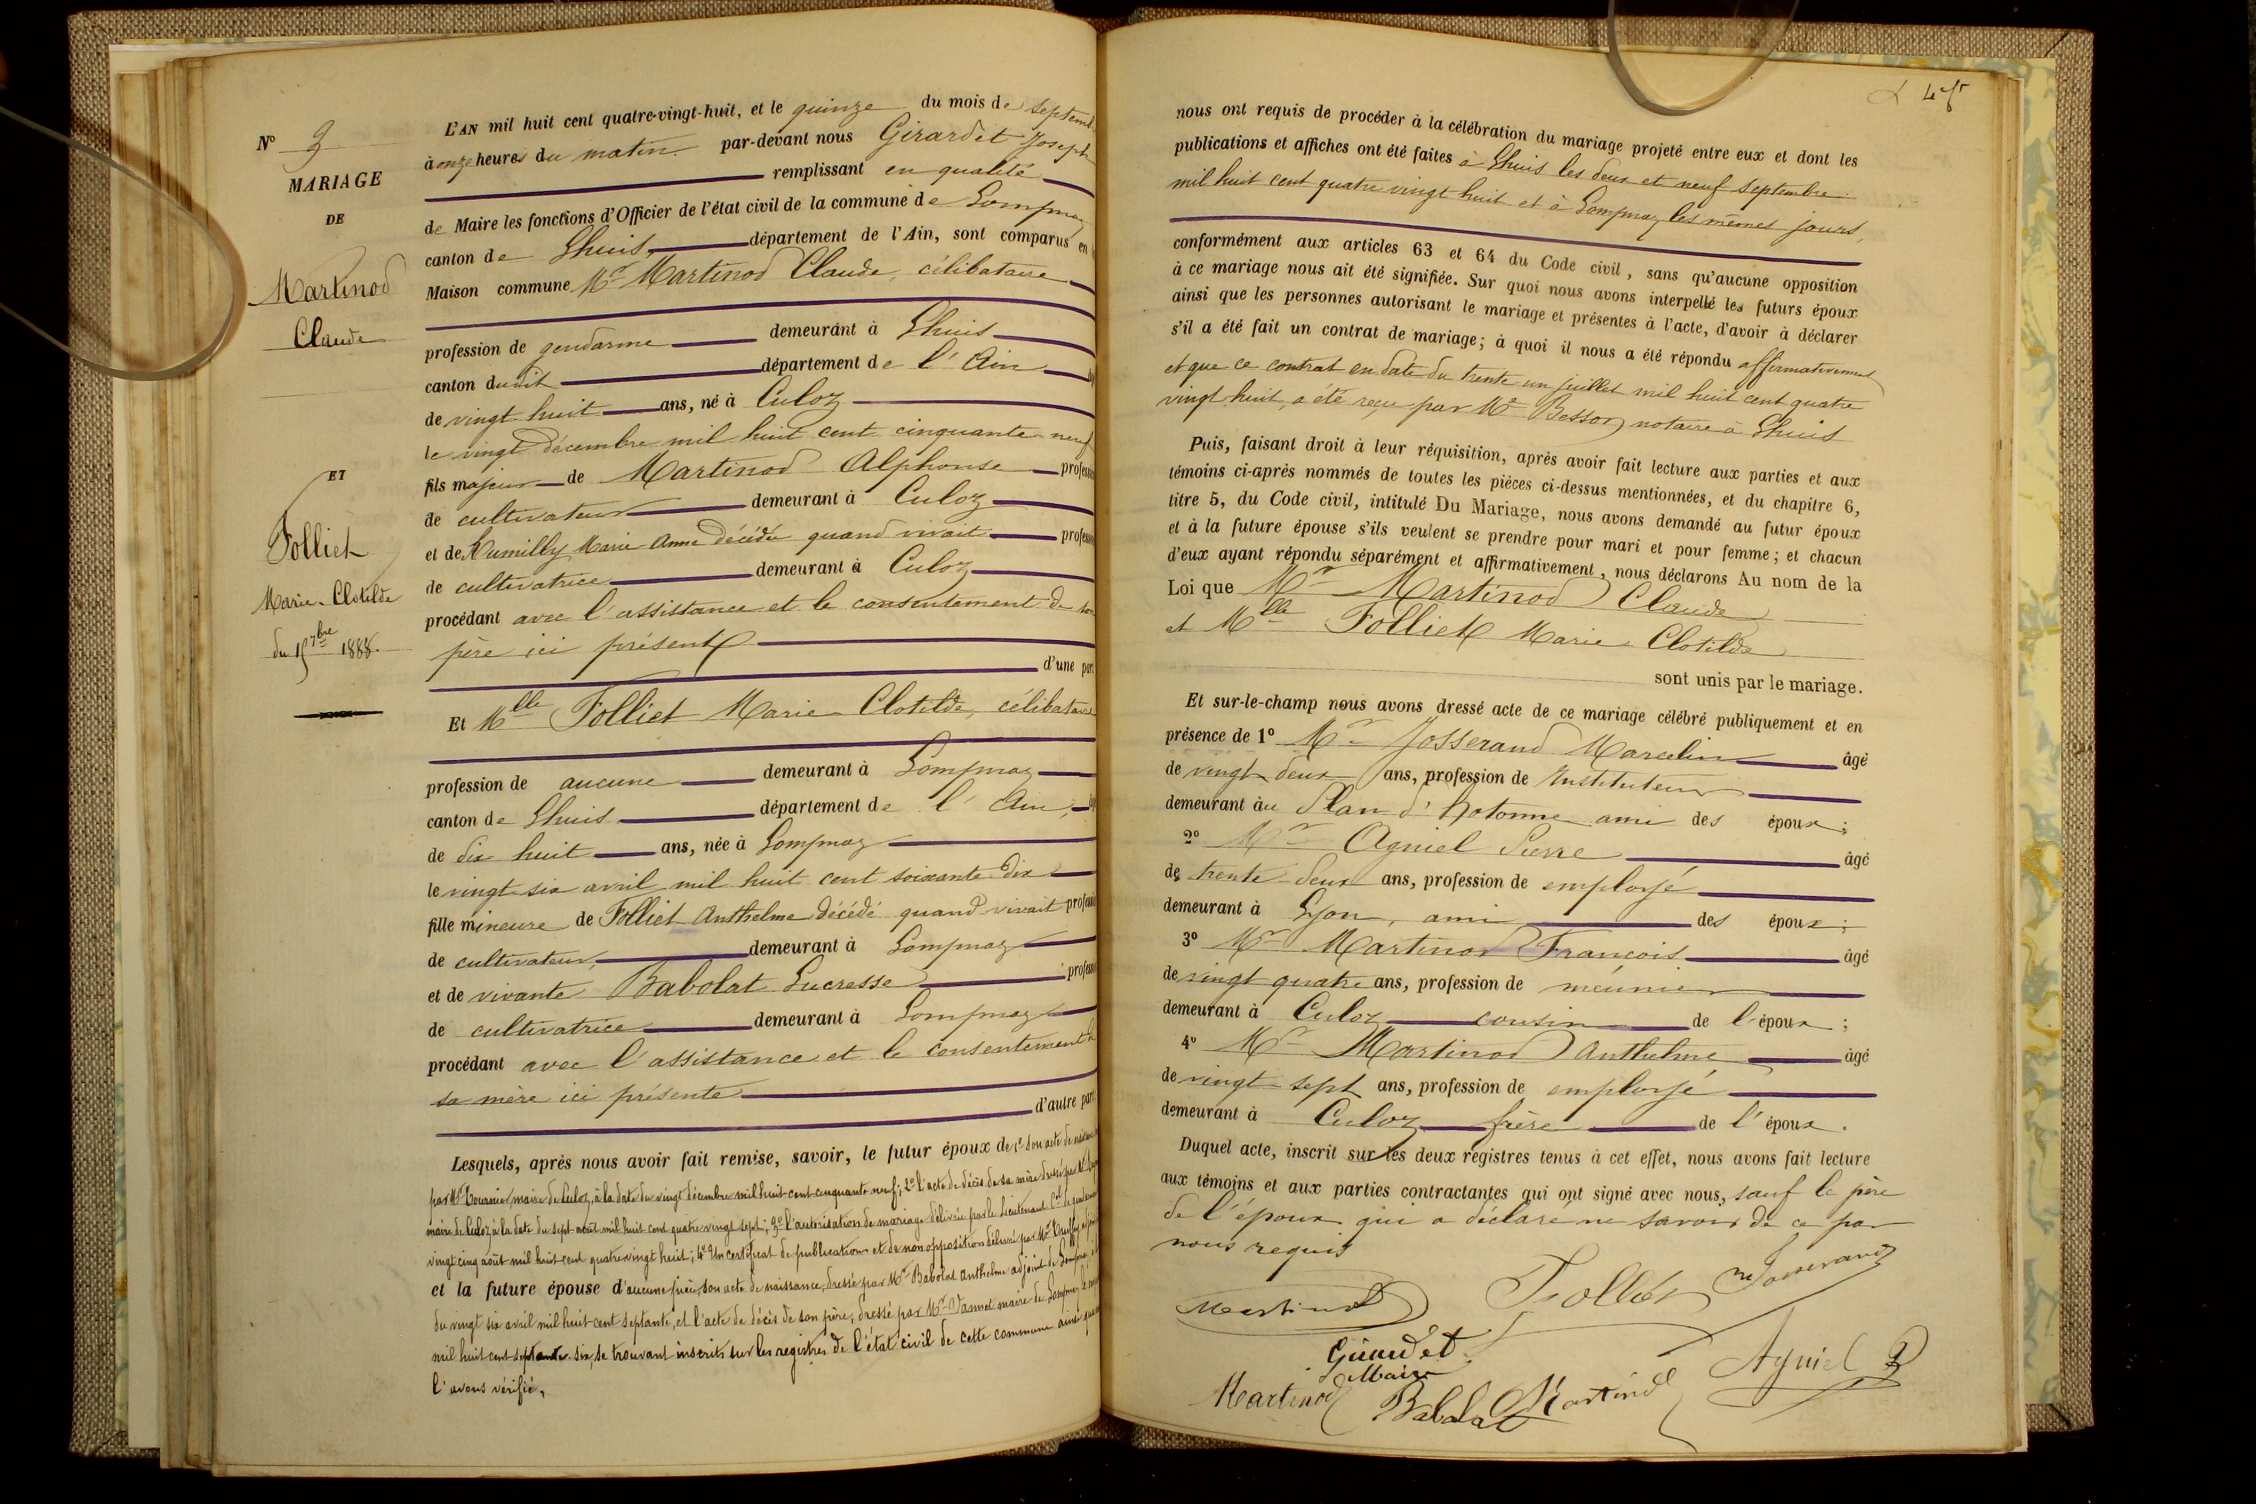 N° 9
MARIAGE
DE
Martinod
Claude
ET
Folliet
Marie-Clotilde
du 15 7bre 1888.
L'AN mil huit cent quatre-vingt-huit, et le quinze du mois de Septemb
à onze heures du matin par-devant nous Girardet Joseph
remplissant en qualité
de Maire les fonctions d'Officier de l'état civil de la commune de Lompnaz
canton de Lhuis département de l'Ain, sont comparus en
Maison commune Mr Martinod Claude, célibataire
profession de gendarme demeurant à Lhuis
canton dudit département de l'Ain
de vingt huit ans, né à Culoz
le vingt décembre mil huit cent cinquante neuf
fils majeur de Martinod Alphonse profession
de cultivateur demeurant à Culoz
et de Rumilly Marie Anne décédée quand vivait profession
de cultivatrice demeurant à Culoz
procédant avec l'assistance et le consentement de son
père ici présent
d'une part
Et Mlle Folliet Marie Clotilde, célibataire
profession de aucune demeurant à Lompnaz
canton de Lhuis département de l'Ain,
de dix huit ans, née à Lompnaz
le vingt six avril mil huit cent soixante dix
fille mineure de Folliet Anthelme décédé quand vivait profession
de cultivateur, demeurant à Lompnaz
et de vivante Babolat Lucresse profession
de cultivatrice demeurant à Lompnaz
procédant avec l'assistance et le consentement de
sa mère ici présente
d'autre part.
Lesquels, après nous avoir fait remise, savoir, le futur époux de 1° son acte de naissance
par Mr maire de Culoz, à la date du vingt décembre mil huit cent cinquante neuf; 2° l'acte de décès de sa mère dressé par Mr
maire de Culoz à la date du sept août mil huit cent quatre vingt sept; 3° l'autorisation de mariage délivrée par le Lieutenant Cel de gendarmerie
vingt cinq août mil huit cent quatre vingt huit; 4° Un certificat de publications et de non opposition délivré par Mr
et la future épouse d'aucune pièce, son acte de naissance, dressé par Mr Babolat Anthelme adjoint de Lompnaz
du vingt six avril mil huit cent septante, et l'acte de décès de son père, dressé par Mr Vannet maire de Lompnaz
mil huit cent septante-six, se trouvant inscrits sur les registres de l'état civil de cette commune ainsi que
l'avons vérifié,
nous ont requis de procéder à la célébration du mariage projeté entre eux et dont les
publications et affiches ont été faites à Lhuis les deux et neuf Septembre
mil huit cent quatre vingt huit et à Lompnaz les mêmes jours,
conformément aux articles 63 et 64 du Code civil, sans qu'aucune opposition
à ce mariage nous ait été signifiée. Sur quoi nous avons interpellé les futurs époux
ainsi que les personnes autorisant le mariage et présentes à l'acte, d'avoir à déclarer
s'il a été fait un contrat de mariage; à quoi il nous a été répondu affirmativement
et que ce contrat en date du trente un juillet mil huit cent quatre
vingt huit, a été reçu par Me Besson notaire à Lhuis
Puis, faisant droit à leur réquisition, après avoir fait lecture aux parties et aux
témoins ci-après nommés de toutes les pièces ci-dessus mentionnées, et du chapitre 6,
titre 5, du Code civil, intitulé Du Mariage, nous avons demandé au futur époux
et à la future épouse s'ils veulent se prendre pour mari et pour femme; et chacun
d'eux ayant répondu séparément et affirmativement, nous déclarons Au nom de la
Loi que Mr Martinod Claude
et Mlle Folliet Marie Clotilde
sont unis par le mariage.
Et sur-le-champ nous avons dressé acte de ce mariage célébré publiquement et en
présence de 1° Mr Josserand Marcelin âgé
de vingt deux ans, profession de Instituteur
demeurant au Plan d'hotonne ami des époux;
2° Mr Agniel Pierre âgé
de trente deux ans, profession de employé
demeurant à Lyon, ami des époux;
3° Mr Martinod François âgé
de vingt quatre ans, profession de meunier
demeurant à Culoz cousin de l'époux;
4° Mr Martinod Anthelme âgé
de vingt sept ans, profession de employé
demeurant à Culoz frère de l'époux.
Duquel acte, inscrit sur les deux registres tenus à cet effet, nous avons fait lecture
aux témoins et aux parties contractantes qui ont signé avec nous, sauf le père
de l'époux qui a déclaré ne savoir de ce par
nous requis
Martinod Folliet Josserand
Girardet
Maire Agniel P
Martinod Babolat Martinod